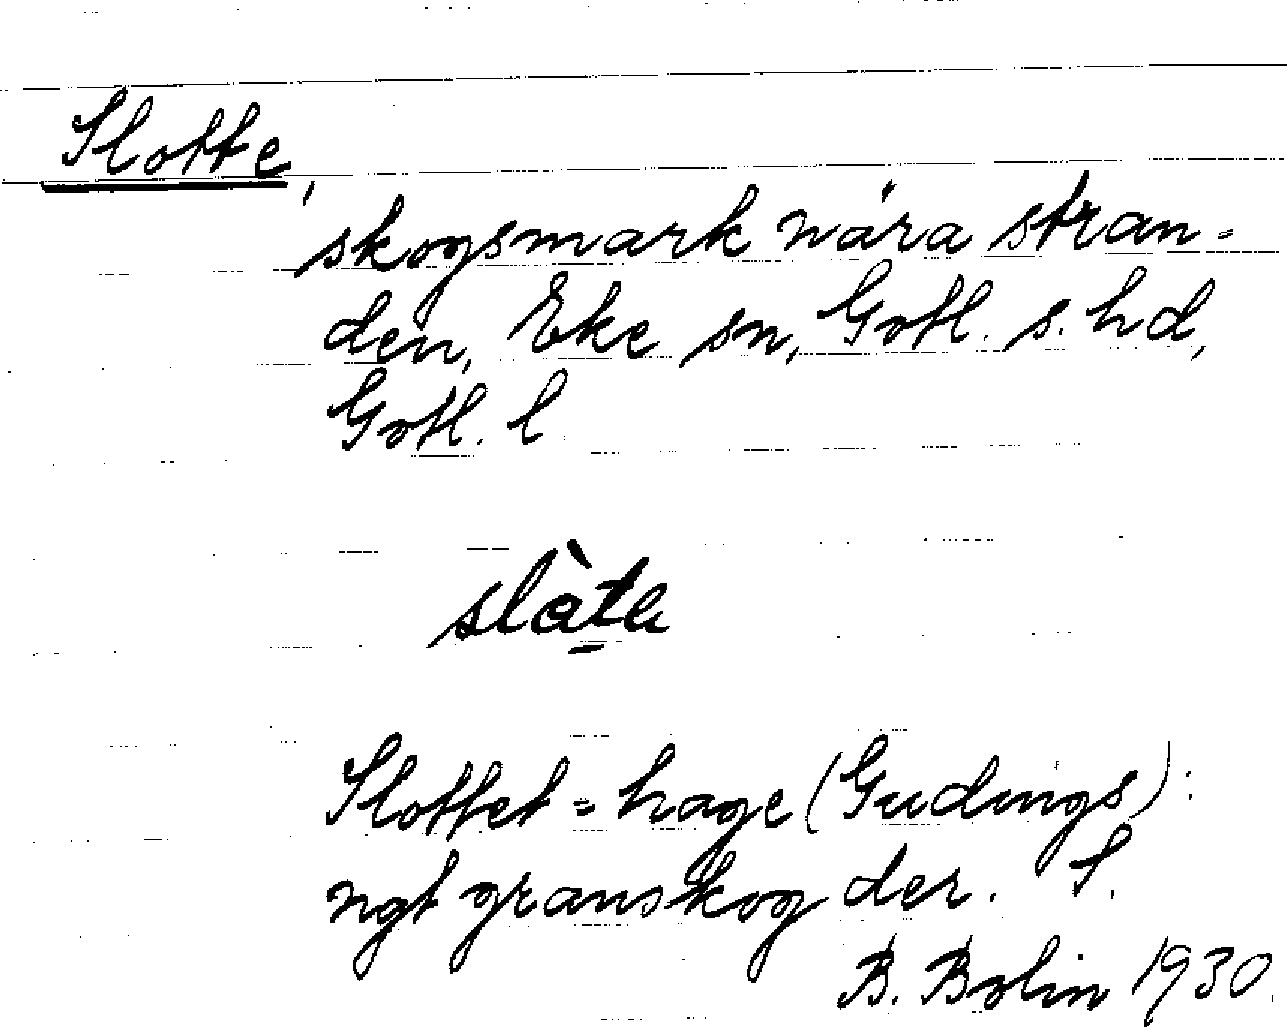 Slotte,
skogsmark nära stran-
den, Eke sn, Gotl. s. hd,
Gotl. l
slàta
Slottet = hage (Gudings):
ngt granskog der. S.
B. Bolin 1930